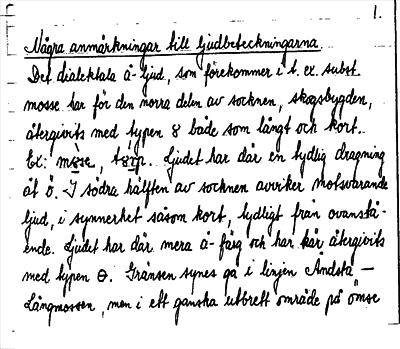 1.
Några anmärkningar till ljudbeteckningarna.
Det dialektala å-ljud, som förekommer i t. ex. subst.
mosse har för den norra delen av socknen, skogsbygden,
återgivits med typen 8 både som långt och kort.
Ex: m8se, t8rp. Ljudet har där en tydlig dragning
åt ö. I södra hälften av socknen avviker motsvarande
ljud, i synnerhet såsom kort, tydligt från ovanstå-
ende. Ljudet har där mera å-färg och har här återgivits
med typen ɵ. Gränsen synes gå i linjen Åndsta —
Långmossen, men i ett ganska utbrett område på ömse